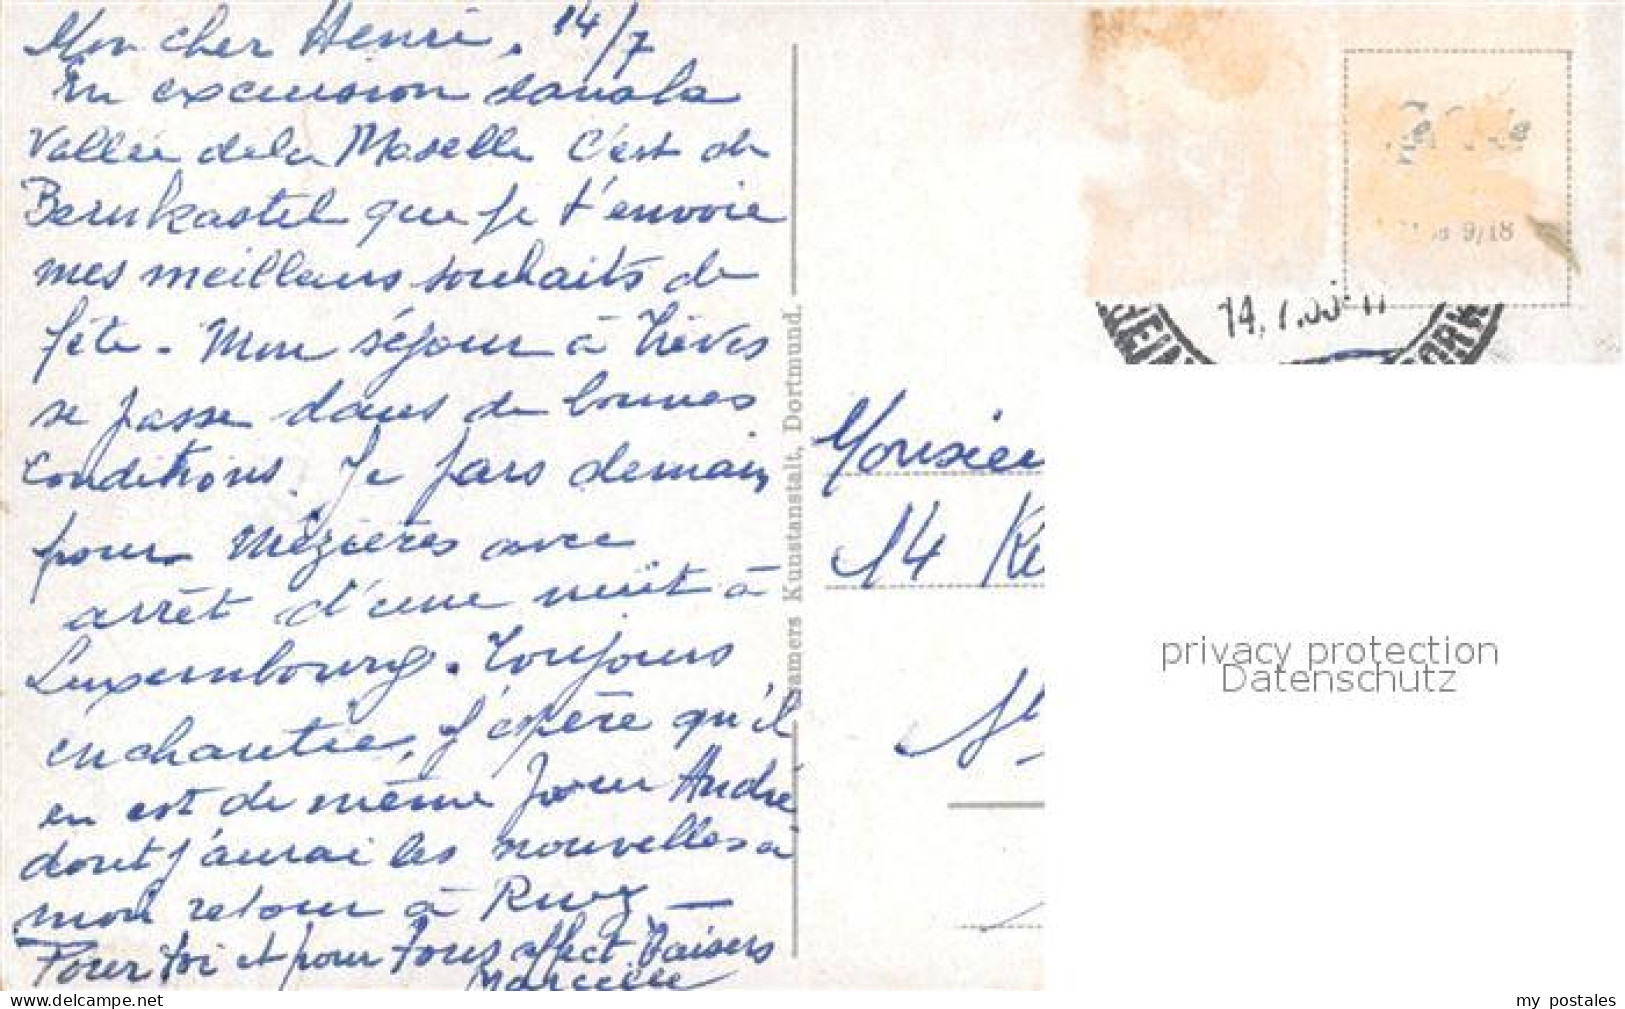 Mon cher Henri. 14/7
En excursion dans la
Vallée de la Moselle C'est de
Bernkastel que je t'envoie
mes meilleurs souhaits de
fête. Mon séjour à Trèves
se passe dans de bonnes
conditions. Je pars demain
pour Mézières avec
arrêt d'une nuit à
Luxembourg. Toujours
enchantée, j'espère qu'il
en est de même pour André
dont j'aurai les nouvelles à
mon retour à
Pour toi et pour tous affect baisers
Marcelle
Kunstanstalt, Dortmund.
9/18
14.7.
Monsieu
14
privacy protection
Datenschutz
my postales